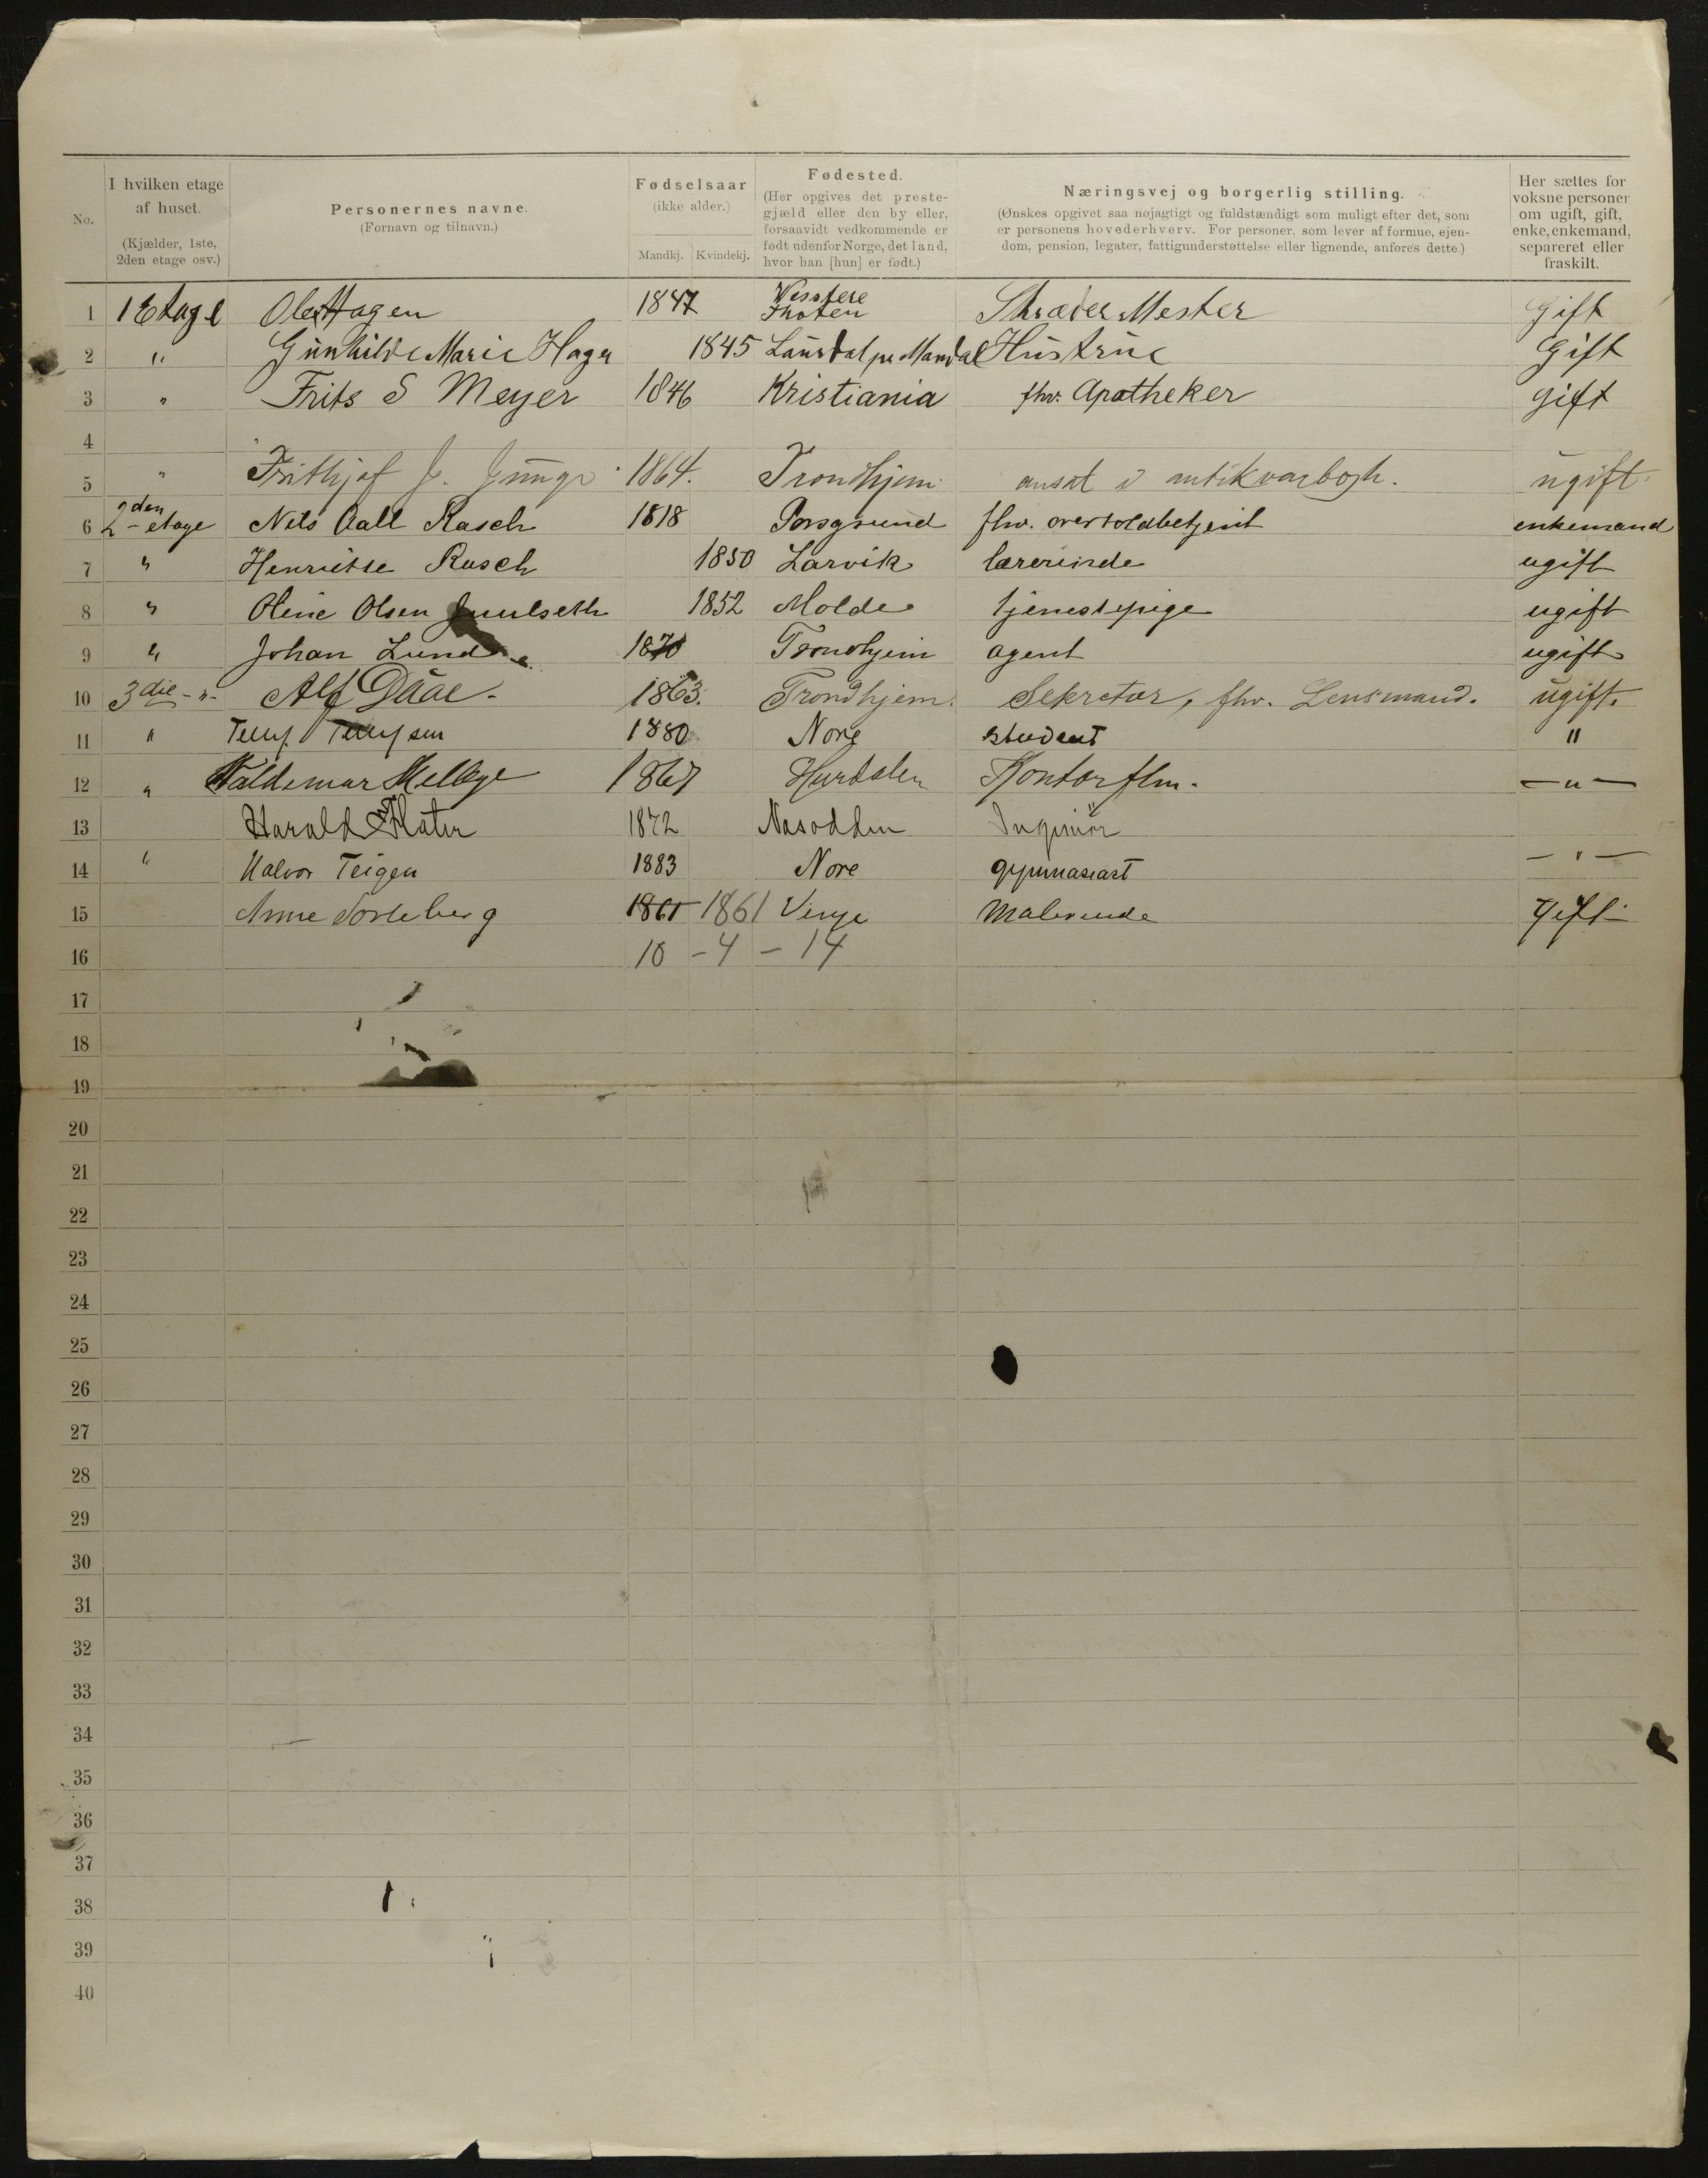 No. | I hvilken etage af huset. (Kjælder, 1ste, 2den etage osv.) | Personernes navne. (Fornavn og tilnavn.) | Fødselsaar (ikke alder.) Mandkj. Kvindekj. | Fødested. (Her opgives det prestegjæld eller den by eller, forsaavidt vedkommende er født udenfor Norge, det land, hvor han [hun] er født.) | Næringsvej og borgerlig stilling. (Ønskes opgivet saa nøjagtigt og fuldstændigt som muligt efter det, som er personens hovederhverv. For personer, som lever af formue, ejendom, pension, legater, fattigunderstøttelse eller lignende, anføres dette.) | Her sættes for voksne personer om ugift, gift, enke, enkemand, separeret eller fraskilt.
1 1 Etage Ole Hagen 1847 Wesstere Thoten Skræder Mester Gift
2 " Gunhilde Marie Hagn 1845 Laurdal pr Mandal Hustrue Gift
3 " Frits S Meyer 1846 Kristiania fhv. Apotheker gift
4
5 " Frithjof J. 1864. Trondhjem ansat i antikvarbogh. ugift
6 2den etage Nils Aall Rasch 1818 Porsgrund fhv. overtoldbetjent enkemand
7 " Henriette Rasch 1850 Larvik lærerinde ugift
8 " Oline Olsen Juulseth 1852 Molde tjenestepige ugift
9 " Johan Lund 1870 Trondhjem agent ugift
10 3die -"- Alf Dåae. 1863. Trondhjem. Sekretær, fhv. Lensmand. ugift.
11 " 1880 Nore student "
12 " Valdemar Melbye 1867 Hurdalen Kontorflm. — " —
13 Harald 1872 Nasodden Ingeniør
14 " Halvor Teigen 1883 Nore gymnasiast — " —
15 Anne Torleberg 1861 1861 Vinje Malerinde Gift
16 10 - 4 - 14
17
18
19
20
21
22
23
24
25
26
27
28
29
30
31
32
33
34
35
36
37
38
39
40